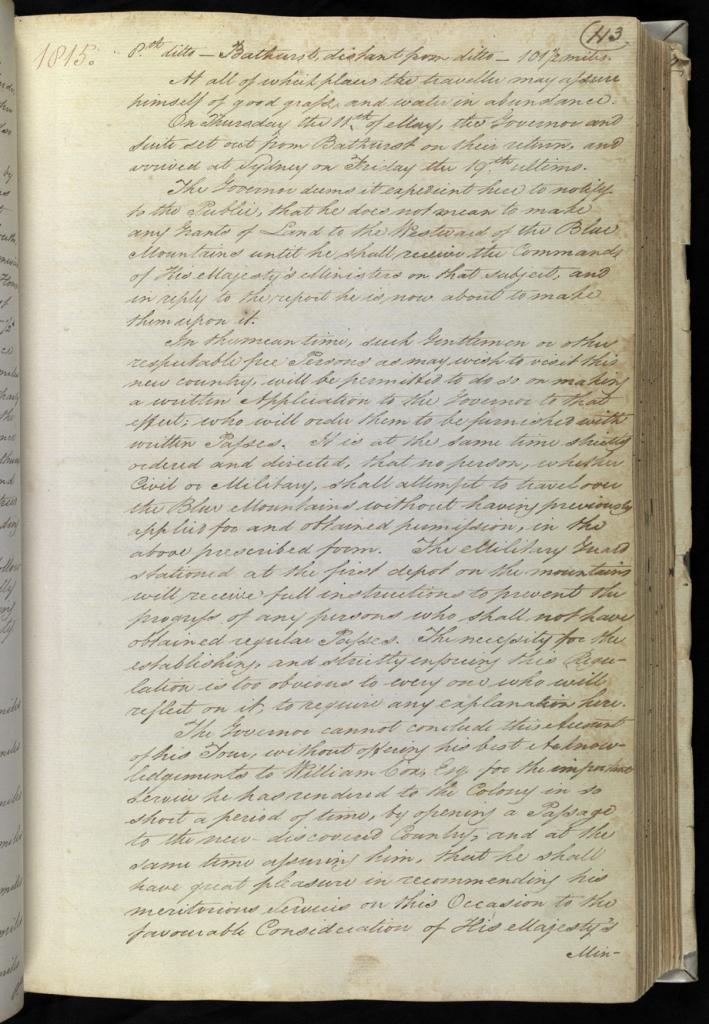 113
1815.
8.th ditto - Bathurst, distant from ditto - 101 1/2 miles.
At all of which places the traveller may assure
himself of good grass, and water in abundance.
On Thursday the 11.th of May, the Governor and
Suite set out from Bathurst on their return, and
arrived at Sydney on Friday the 19.th ultimo.
The Governor deems it expedient here to notify
to the Public, that he does not mean to make
any Grants of Land to the Westward of the Blue
Mountains until he shall receive the Commands
of His Majesty's Ministers on that subject, and
in reply to the report he is now about to make
them upon it.
In the mean time, such Gentlemen or other
respectable free Persons as may wish to visit this
new country, will be permitted to do so on making
a written Application to the Governor to that
effect; who will order them to be furnished with
written Passes. It is at the same time strictly
ordered and directed, that no person, whether
Civil or Military, shall attempt to travel over
the Blue Mountains without having previously
applied for and obtained permission, in the
above prescribed form. The Military Guard
stationed at the first depot on the mountains
will receive full instructions to prevent the
progress of any persons who shall not have
obtained regular Passes. The necessity for the
establishing, and strictly enforcing this Regu-
lation is too obvious to every one who will
reflect on it, to require any explanation here.
The Governor cannot conclude this Account
of his Tour, without offering his best Acknow-
ledgements to William Cox, Esq. for the important
Service he has rendered to the Colony in so
short a period of time, by opening a Passage
to the new-discovered Country, and at the
same time assuring him, that he shall
have great pleasure in recommending his
meritorious Services on this Occasion to the
favourable Consideration of His Majesty's
Min-